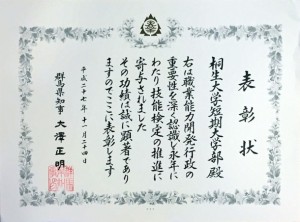 表彰状
桐生大学短期大学部 殿
右は職業能力開発行政の
重要性を深く認識し永年に
わたり技能検定の推進に
寄与されました
その功績は誠に顕著であり
ますのでここに表彰します
平成二十七年十一月二十四日
群馬県知事 大澤正明